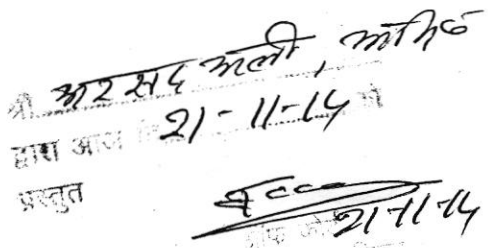 श्री अरसद अली, आमिल
द्वारा आज दि 21-11-14 में
प्रस्तुत
21-11-14